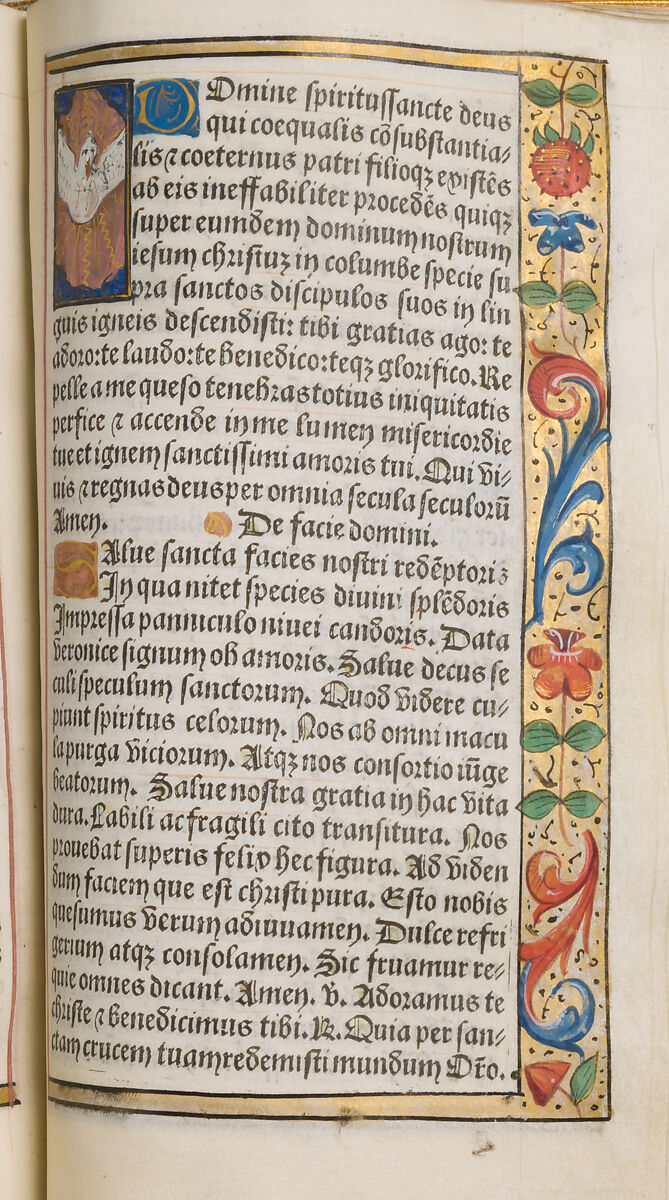 Domine spiritussancte deus
qui coequalis cõsubstantia-
lis ⁊ coeternus patri filioqꝫ existẽs
ab eis ineffabiliter procedẽs quiqꝫ
super eumdem dominum nostrum
iesum christuꝫ in columbe specie su
pra sanctos discipulos suos in lin
guis igneis descendisti: tibi gratias ago: te
adoro: te laudo: te benedico: teqꝫ glorifico. Re
pelle a me queso tenebras totius iniquitatis
perfice ⁊ accende in me lumen misericordie
tue et ignem sanctissimi amoris tui. Qui vi-
uis ⁊ regnas deus per omnia secula seculorũ
Amen. De facie domini.
Salue sancta facies nostri redẽptoris
In qua nitet species diuini splẽdoris
Impressa panniculo niuei candoris. Data
veronice signum ob amoris. Salue decus se
culi speculum sanctorum. Quod videre cu-
piunt spiritus celorum. Nos ab omni macu
la purga viciorum. Atqꝫ nos consortio iũge
beatorum. Salue nostra gratia in hac vita
dura. Labili ac fragili cito transitura. Nos
prouehat superis felix hec figura. Ad viden
dum faciem que est christi pura. Esto nobis
quesumus verum adiuuamen. Dulce refri
gerium atqꝫ consolamen. Sic fruamur re-
quie omnes dicant. Amen. v. Adoramus te
christe ⁊ benedicimus tibi. R. Quia per san-
ctam crucem tuam redemisti mundum Or̃o.